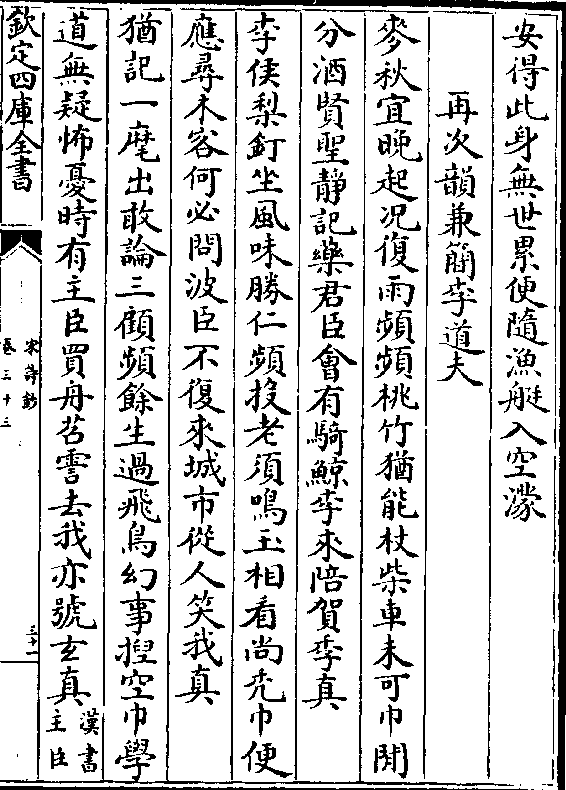 安得此身無世累便隨漁艇入空濛
再次韻兼簡李道夫
麥秋宜晚起况復雨頻頻桃竹猶能杖柴車未可巾閒
分酒賢聖靜記藥君臣會有騎鯨李來陪賀季真
李侯梨飣坐風味勝仁頻投老須鳴玉相看尚禿巾便
應尋木客何必問波臣不復來城市從人笑我真
猶記一麾出敢論三顧頻餘生過飛鳥幻事揑空巾學
道無疑怖憂時有主臣買舟苕霅去我亦號玄真漢書主臣
欽定四庫全書
宋詩鈔
卷三十三
三十一